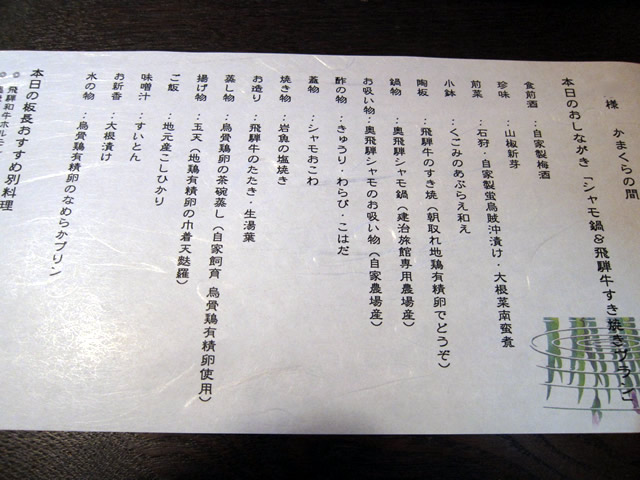 様 かまくらの間
本日のおしながき 「シャモ鍋&飛騨牛すき焼きプラン」
食前酒 : 自家製梅酒
珍味 : 山椒新芽
前菜 : 石狩・自家製蛍烏賊沖漬け・大根菜南蛮煮
小鉢 : くごみのあぶらえ和え
陶板 : 飛騨牛のすき焼 (朝取れ地鶏有精卵でどうぞ)
鍋物 : 奥飛騨シャモ鍋 (建治旅館専用農場産)
お吸い物 : 奥飛騨シャモのお吸い物 (自家農場産)
酢の物 : きゅうり・わらび・こはだ
蓋物 : シャモおこわ
焼き物 : 岩魚の塩焼き
お造り : 飛騨牛のたたき・生湯葉
蒸し物 : 烏骨鶏卵の茶碗蒸し (自家飼育 烏骨鶏有精卵使用)
揚げ物 : 玉天 (地鶏有精卵の巾着天麩羅)
ご飯 : 地元産こしひかり
味噌汁 : すいとん
お新香 : 大根漬け
水の物 : 烏骨鶏有精卵のなめらかプリン
本日の板長おすすめ別料理
◎ 飛騨和牛ホルモン